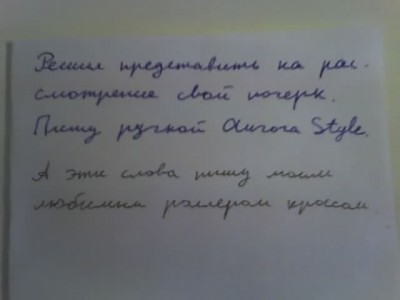 Решил представить на рас-
смотрение свой почерк.
Пишу ручкой Aurora Style.
А эти слова пишу моим
любимым роллером кросом